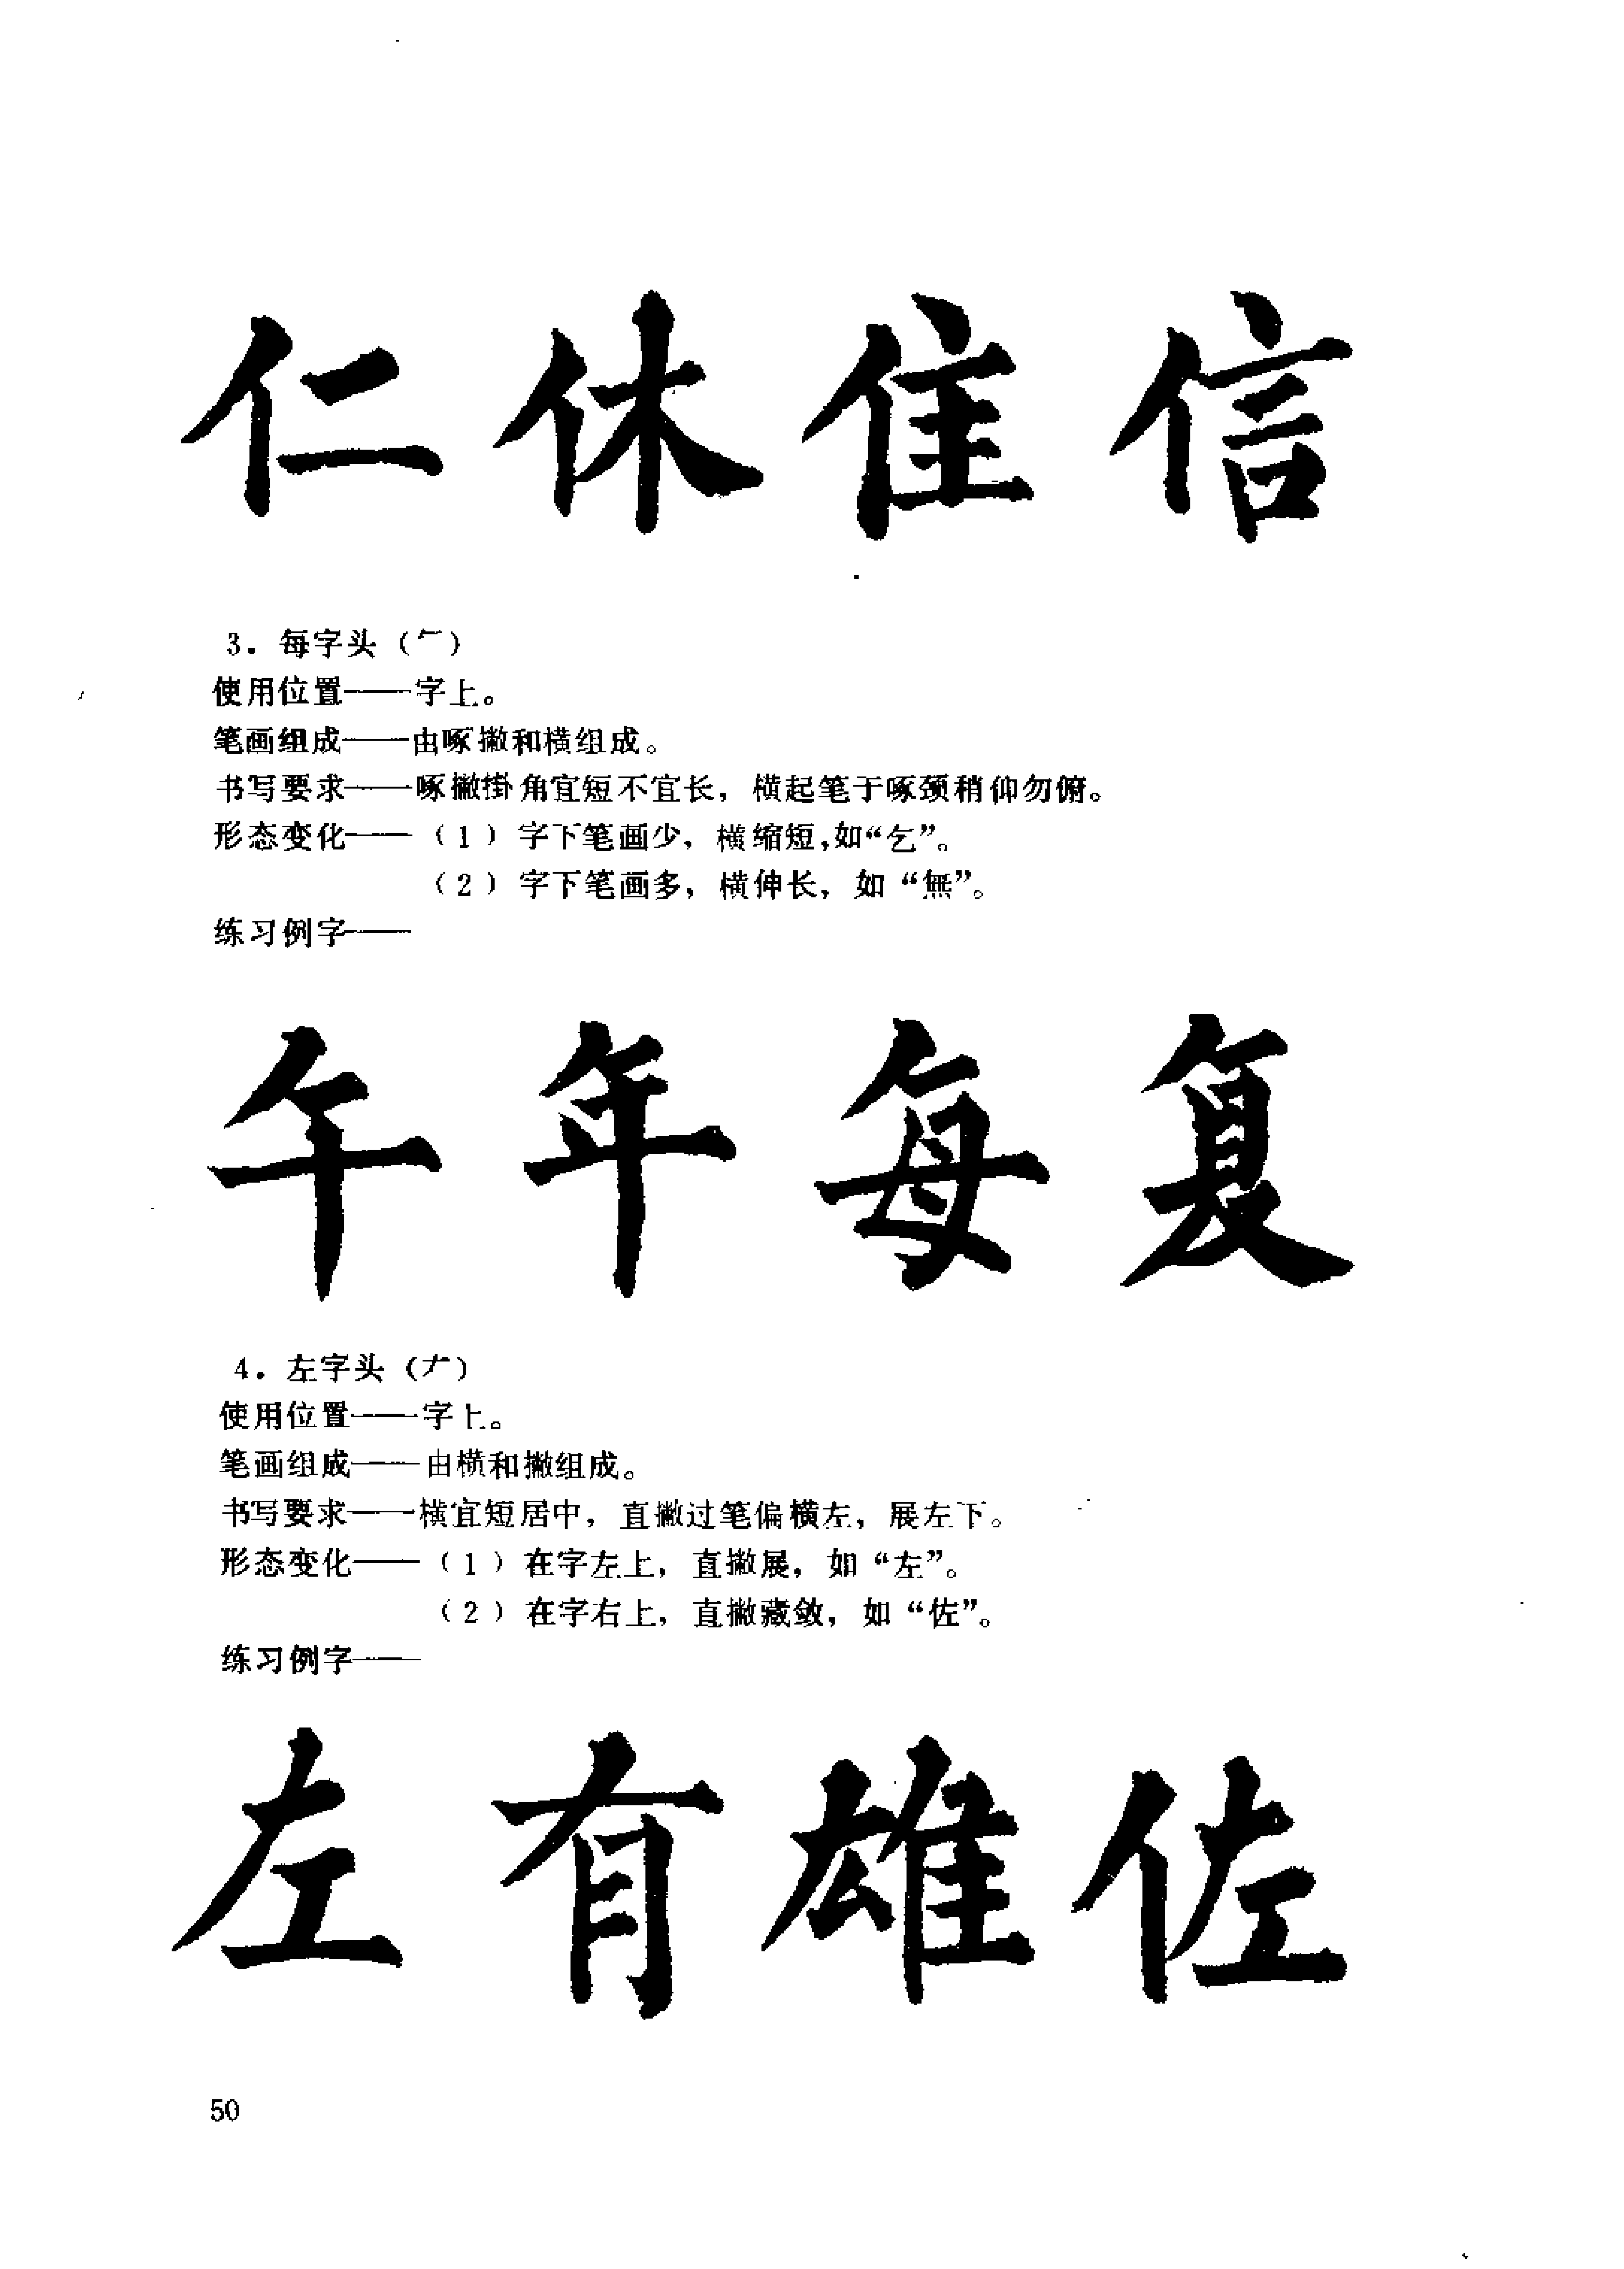 仁休住信
3．每字头（𠂉）
使用位置——字上。
笔画组成——由啄撇和横组成。
书写要求——啄撇掛角宜短不宜长，横起笔于啄颈稍仰勿俯。
形态变化——（1）字下笔画少，横缩短，如“乞”。
（2）字下笔画多，横伸长，如“無”。
练习例字——
午年每复
4．左字头（𠂇）
使用位置——字上。
笔画组成——由横和撇组成。
书写要求——横宜短居中，直撇过笔偏横左，展左下。
形态变化——（1）在字左上，直撇展，如“左”。
（2）在字右上，直撇藏敛，如“佐”。
练习例字——
左有雄佐
50